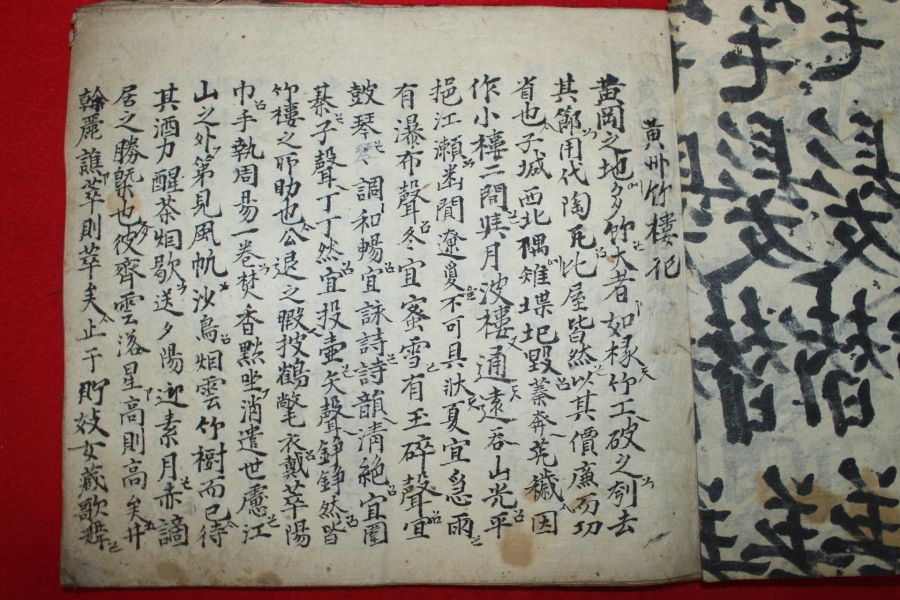 黃州竹樓記
黃岡之地多竹大者如椽竹工破之刳去
其節用代陶瓦比屋皆然以其價廉而功
省也子城西北隅雉堞圮毁蓁莽荒穢因
作小樓二間與月波樓通遠吞山光平
挹江瀬幽閴遼夐不可具狀夏宜急雨
有瀑布聲冬宜蜜雪有玉碎聲宜
鼓琴琴調和暢宜詠詩詩韻淸絶宜圍
棊子聲丁丁然宜投壺矢聲錚錚然皆
竹樓之所助也公退之暇披鶴氅衣戴華陽
巾手執周易一卷焚香默坐消遣世慮江
山之外第見風帆沙鳥烟雲竹樹而已待
其酒力醒茶烟歇送夕陽迎素月赤謫
居之勝槩也彼齊雲落星高則高矣井
幹麗譙華則華矣止于貯妓女藏歌舞